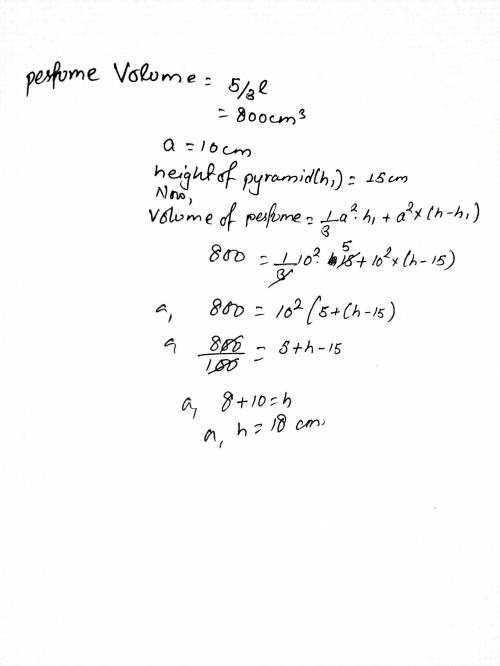 perfume Volume = 5/8 l
= 800cm³
a = 10cm
height of pyramid(h₁) = 15cm
Now,
Volume of perfume = 1/3 a²·h₁ + a²×(h-h₁)
800 = 1/3 10²· 15 5 + 10²×(h-15)
a, 800 = 10² (5+(h-15)
a, 800/100 = 5+h-15
a, 8+10=h
a, h = 18 cm.